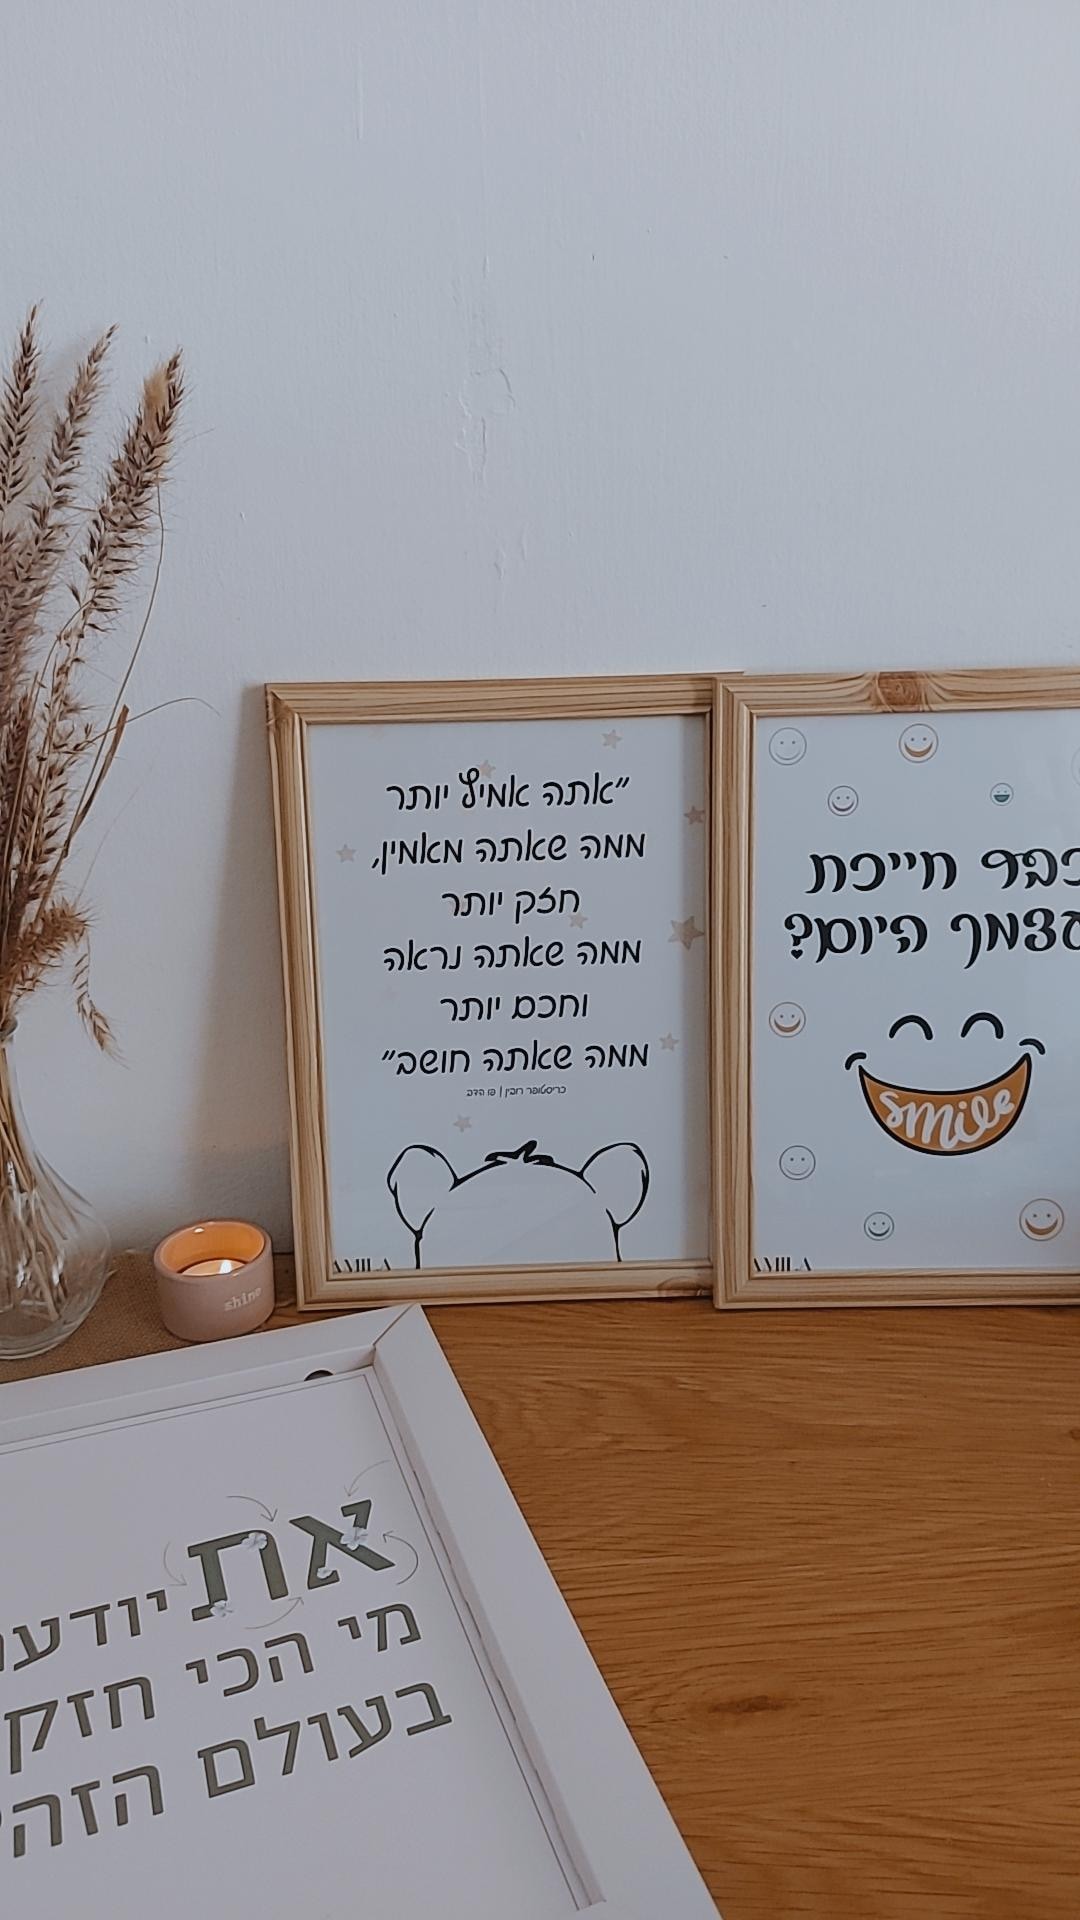 "אתה אמיץ יותר
ממה שאתה מאמין,
חזק יותר
ממה שאתה נראה
וחכם יותר
ממה שאתה חושב"
כריסטופר רובין | פו הדב
AMILA
חייכת
היום?
smile
AMILA
shine
את
מי הכי
בעולם הזה